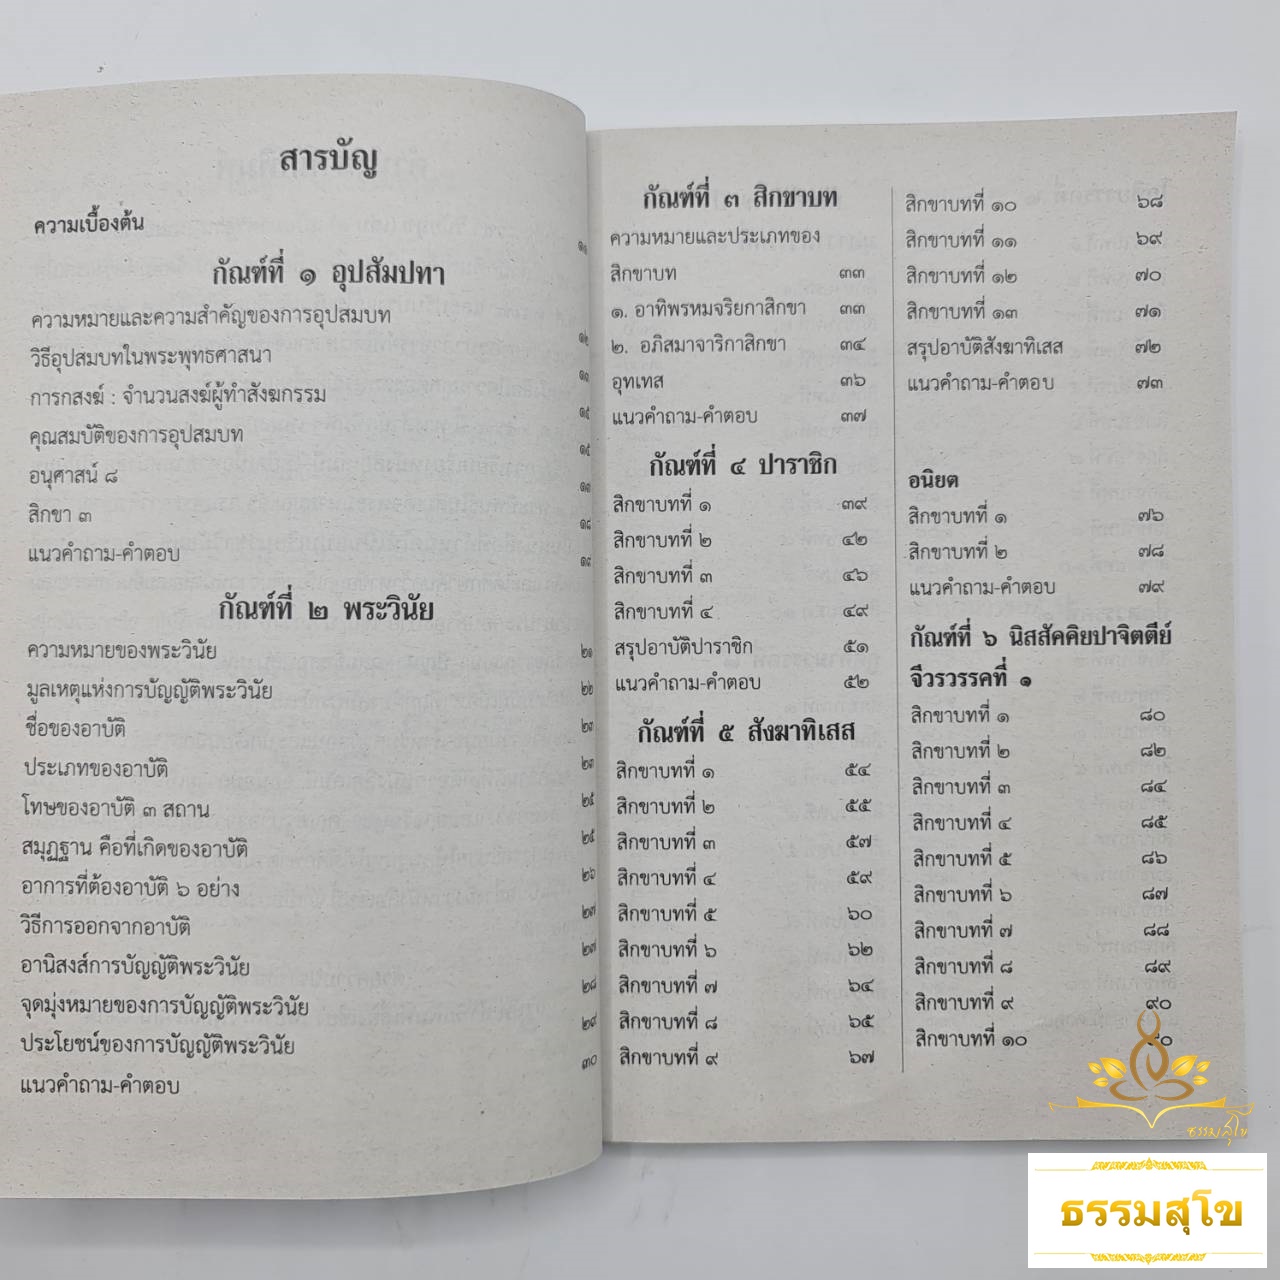 สารบัญ
ความเบื้องต้น ๑๑
กัณฑ์ที่ ๑ อุปสัมปทา
ความหมายและความสำคัญของการอุปสมบท ๑๒
วิธีอุปสมบทในพระพุทธศาสนา ๑๓
การกสงฆ์ : จำนวนสงฆ์ผู้ทำสังฆกรรม ๑๕
คุณสมบัติของการอุปสมบท ๑๕
อนุศาสน์ ๘ ๑๗
สิกขา ๓ ๑๘
แนวคำถาม-คำตอบ ๑๙
กัณฑ์ที่ ๒ พระวินัย
ความหมายของพระวินัย ๒๑
มูลเหตุแห่งการบัญญัติพระวินัย ๒๒
ชื่อของอาบัติ ๒๓
ประเภทของอาบัติ ๒๓
โทษของอาบัติ ๓ สถาน ๒๕
สมุฏฐาน คือที่เกิดของอาบัติ ๒๕
อาการที่ต้องอาบัติ ๖ อย่าง ๒๖
วิธีการออกจากอาบัติ ๒๗
อานิสงส์การบัญญัติพระวินัย ๒๗
จุดมุ่งหมายของการบัญญัติพระวินัย ๒๘
ประโยชน์ของการบัญญัติพระวินัย ๒๙
แนวคำถาม-คำตอบ ๓๐
กัณฑ์ที่ ๓ สิกขาบท
ความหมายและประเภทของ
สิกขาบท ๓๓
๑. อาทิพรหมจริยกาสิกขา ๓๓
๒. อภิสมาจาริกาสิกขา ๓๔
อุทเทส ๓๖
แนวคำถาม-คำตอบ ๓๗
กัณฑ์ที่ ๔ ปาราชิก
สิกขาบทที่ ๑ ๓๙
สิกขาบทที่ ๒ ๔๒
สิกขาบทที่ ๓ ๔๖
สิกขาบทที่ ๔ ๔๙
สรุปอาบัติปาราชิก ๕๑
แนวคำถาม-คำตอบ ๕๒
กัณฑ์ที่ ๕ สังฆาทิเสส
สิกขาบทที่ ๑ ๕๔
สิกขาบทที่ ๒ ๕๕
สิกขาบทที่ ๓ ๕๗
สิกขาบทที่ ๔ ๕๙
สิกขาบทที่ ๕ ๖๐
สิกขาบทที่ ๖ ๖๒
สิกขาบทที่ ๗ ๖๔
สิกขาบทที่ ๘ ๖๕
สิกขาบทที่ ๙ ๖๗
สิกขาบทที่ ๑๐ ๖๘
สิกขาบทที่ ๑๑ ๖๙
สิกขาบทที่ ๑๒ ๗๐
สิกขาบทที่ ๑๓ ๗๑
สรุปอาบัติสังฆาทิเสส ๗๒
แนวคำถาม-คำตอบ ๗๓
อนิยต
สิกขาบทที่ ๑ ๗๖
สิกขาบทที่ ๒ ๗๘
แนวคำถาม-คำตอบ ๗๙
กัณฑ์ที่ ๖ นิสสัคคิยปาจิตตีย์
จีวรวรรคที่ ๑
สิกขาบทที่ ๑ ๘๐
สิกขาบทที่ ๒ ๘๒
สิกขาบทที่ ๓ ๘๔
สิกขาบทที่ ๔ ๘๕
สิกขาบทที่ ๕ ๘๖
สิกขาบทที่ ๖ ๘๗
สิกขาบทที่ ๗ ๘๘
สิกขาบทที่ ๘ ๘๙
สิกขาบทที่ ๙ ๙๐
สิกขาบทที่ ๑๐ ๙๐
ธรรมสุโข
ธรรมสุโข